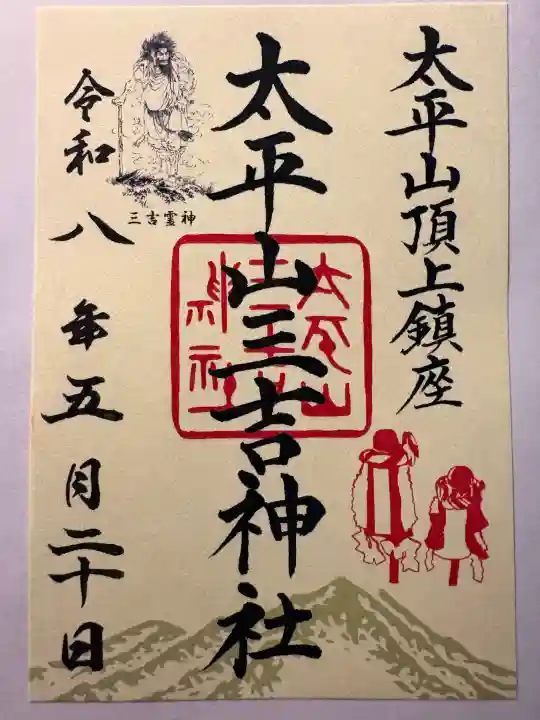 太平山頂上鎮座
太平山三吉神社
太平山
三吉
神社
三吉霊神
令和八年五月二十日